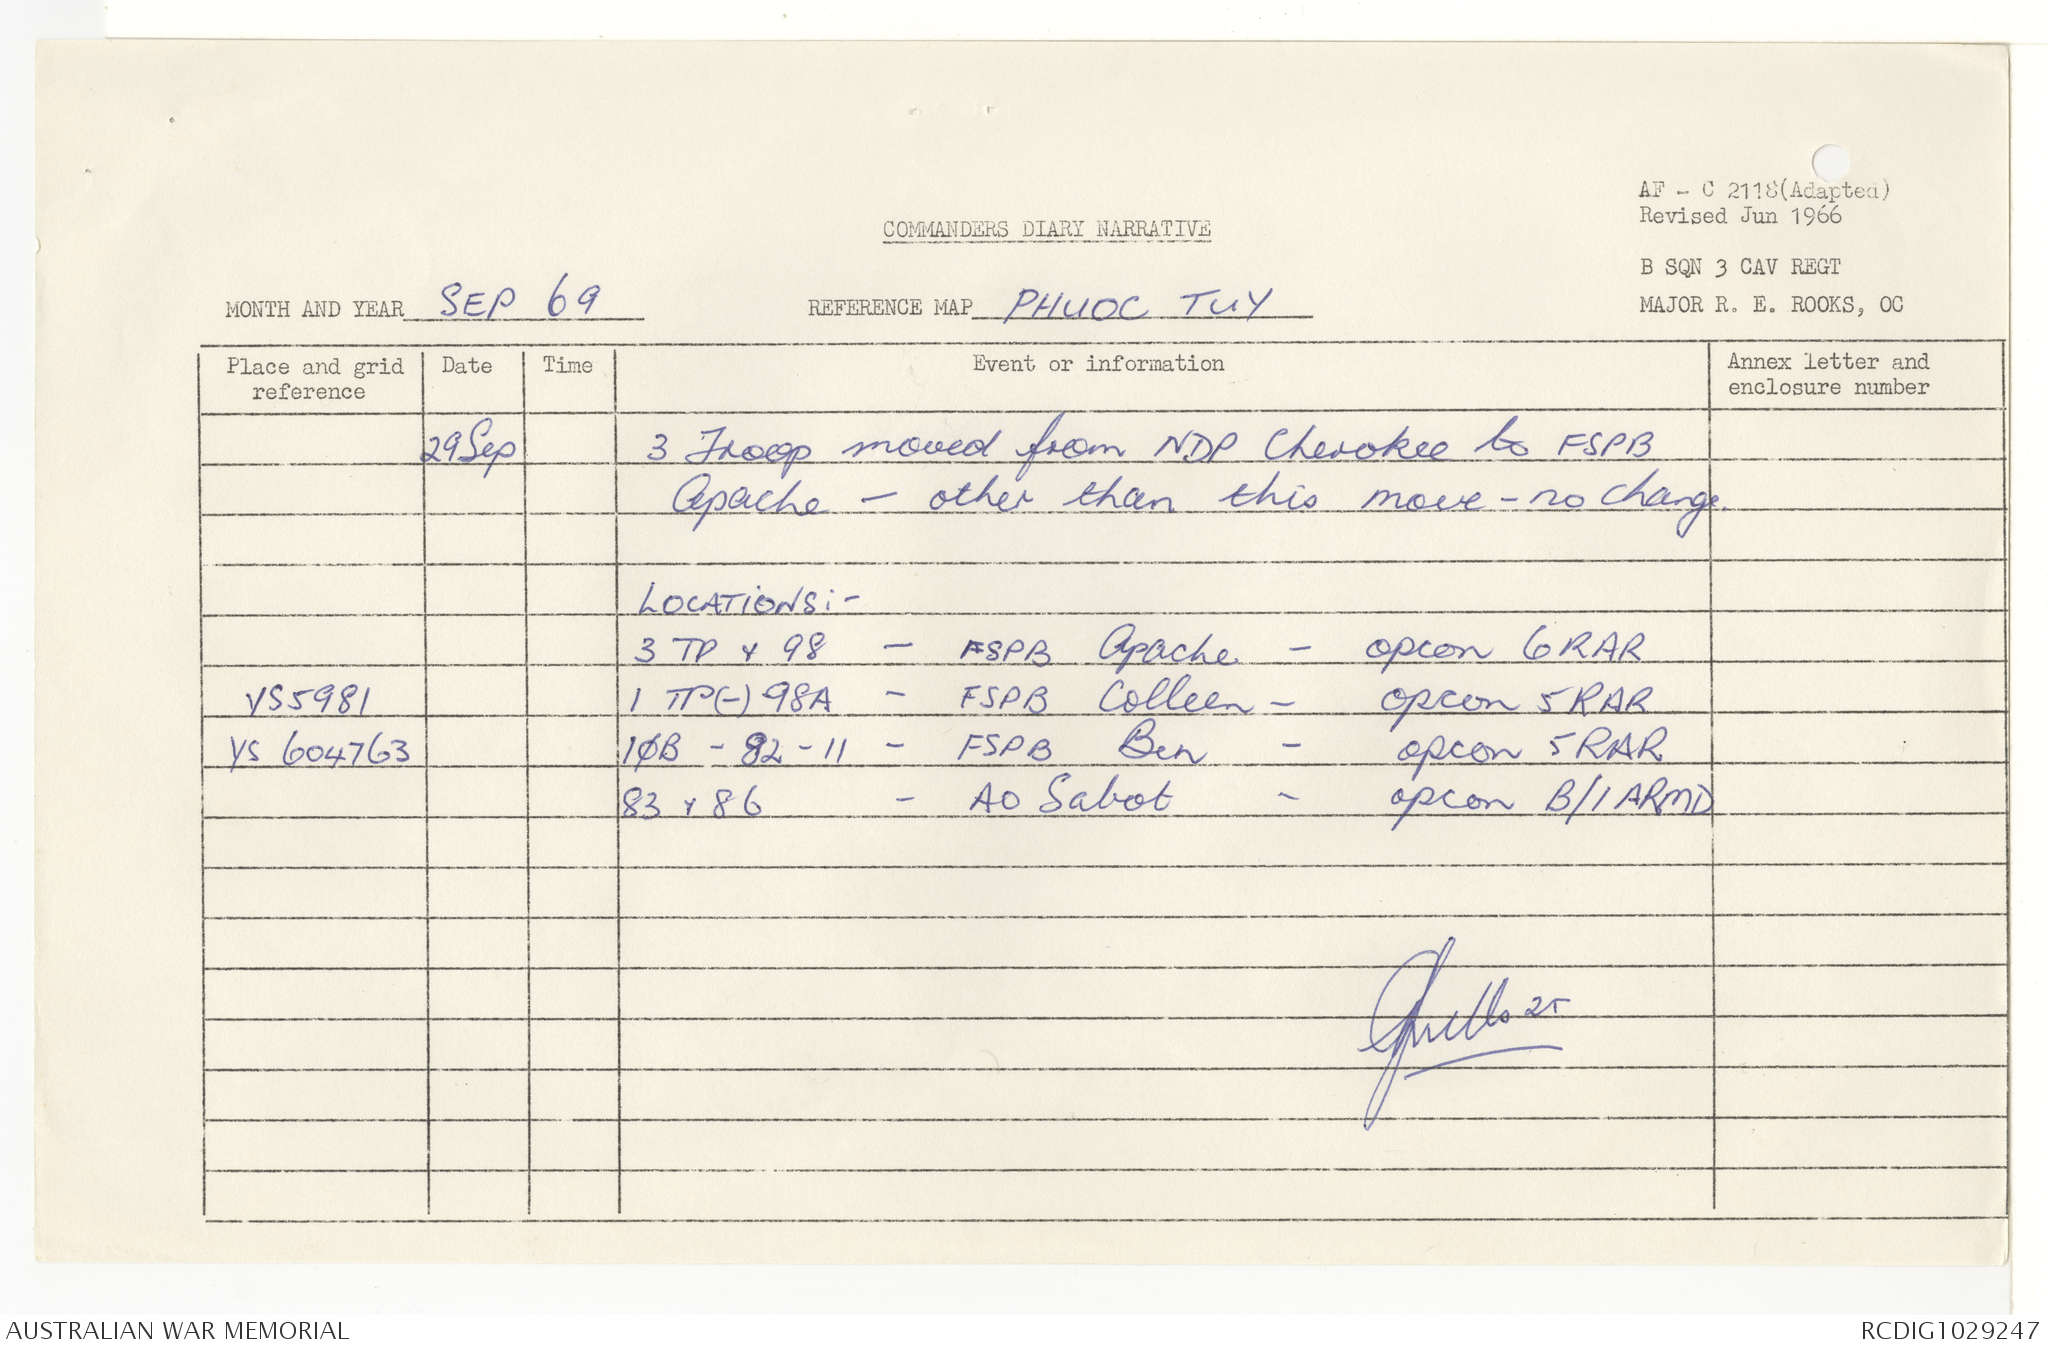 AF - C 2118(Adapted)
Revised Jun 1966
COMMANDERS DIARY NARRATIVE
B SQN 3 CAV REGT
MONTH AND YEAR SEP 69 REFERENCE MAP PHUOC TUY MAJOR R. E. ROOKS, OC
Place and grid reference Date Time Event or information Annex letter and enclosure number
29 Sep 3 Troop moved from NDP Cherokee to FSPB
Apache - other than this move - no change.
LOCATIONS:-
3 TP & 98 - FSPB Apache - opcon 6 RAR
YS5981 1 TP(-) 98A - FSPB Colleen - opcon 5 RAR
YS 604763 1ØB - 82 - 11 - FSPB Ben - opcon 5 RAR
83 & 86 - AO Sabot - opcon B/1 ARMD
AUSTRALIAN WAR MEMORIAL RCDIG1029247